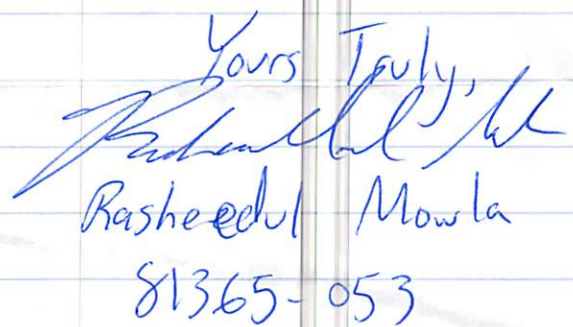 Yours Truly,
Rasheedul Mowla
81365-053